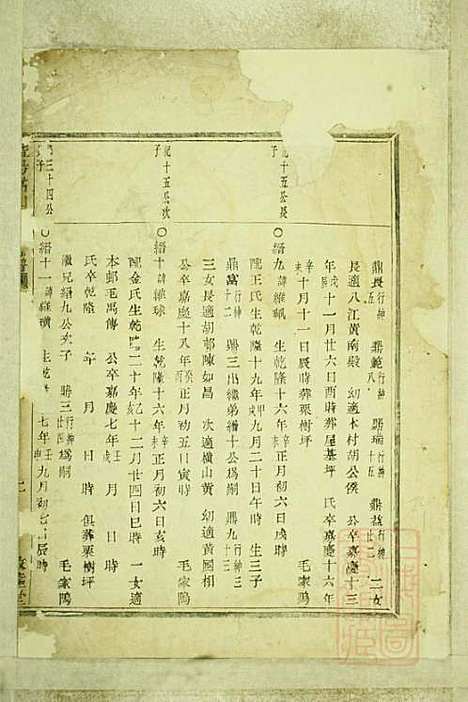 鼎長行紳五 鼎範行紳八 鼎瑞行紳十五 鼎益行紳廿三 二女
長適八江黃南殿 幼適本村胡公俟 公卒嘉慶十三
年戊辰十一月廿六日酉時葬屋基坪 氏卒嘉慶十六年
辛未十月十一日辰時葬栗樹坪 毛家鴫
紀十五公長子
○縉九諱維珮 生乾隆十六年辛未正月初六日戌時
配王氏生乾隆十九年甲戌九月二十日午時 生三子
鼎富行紳十二 鼎三出繼弟縉十公爲嗣 鼎九行紳三十三
三女長適胡邨陳如昌 次適橫山黃 幼適黃國相
公卒嘉慶十八年癸酉正月初五日寅時 毛家鴫
紀十五公次子
○縉十諱維球 生乾隆十六年辛未正月初六日亥時
配金氏生乾隆二十年乙亥十二月廿四日巳時 一女適
本邨毛禹傳 公卒嘉慶七年壬戌 月 日 時
氏卒乾隆 年 月 日 時 俱葬栗樹坪
三十四公子
○縉十一諱維橫 生乾隆 七年壬申九月初七日辰時
繼兄縉九公次子 鼎三行紳廿四爲嗣 毛家鴫